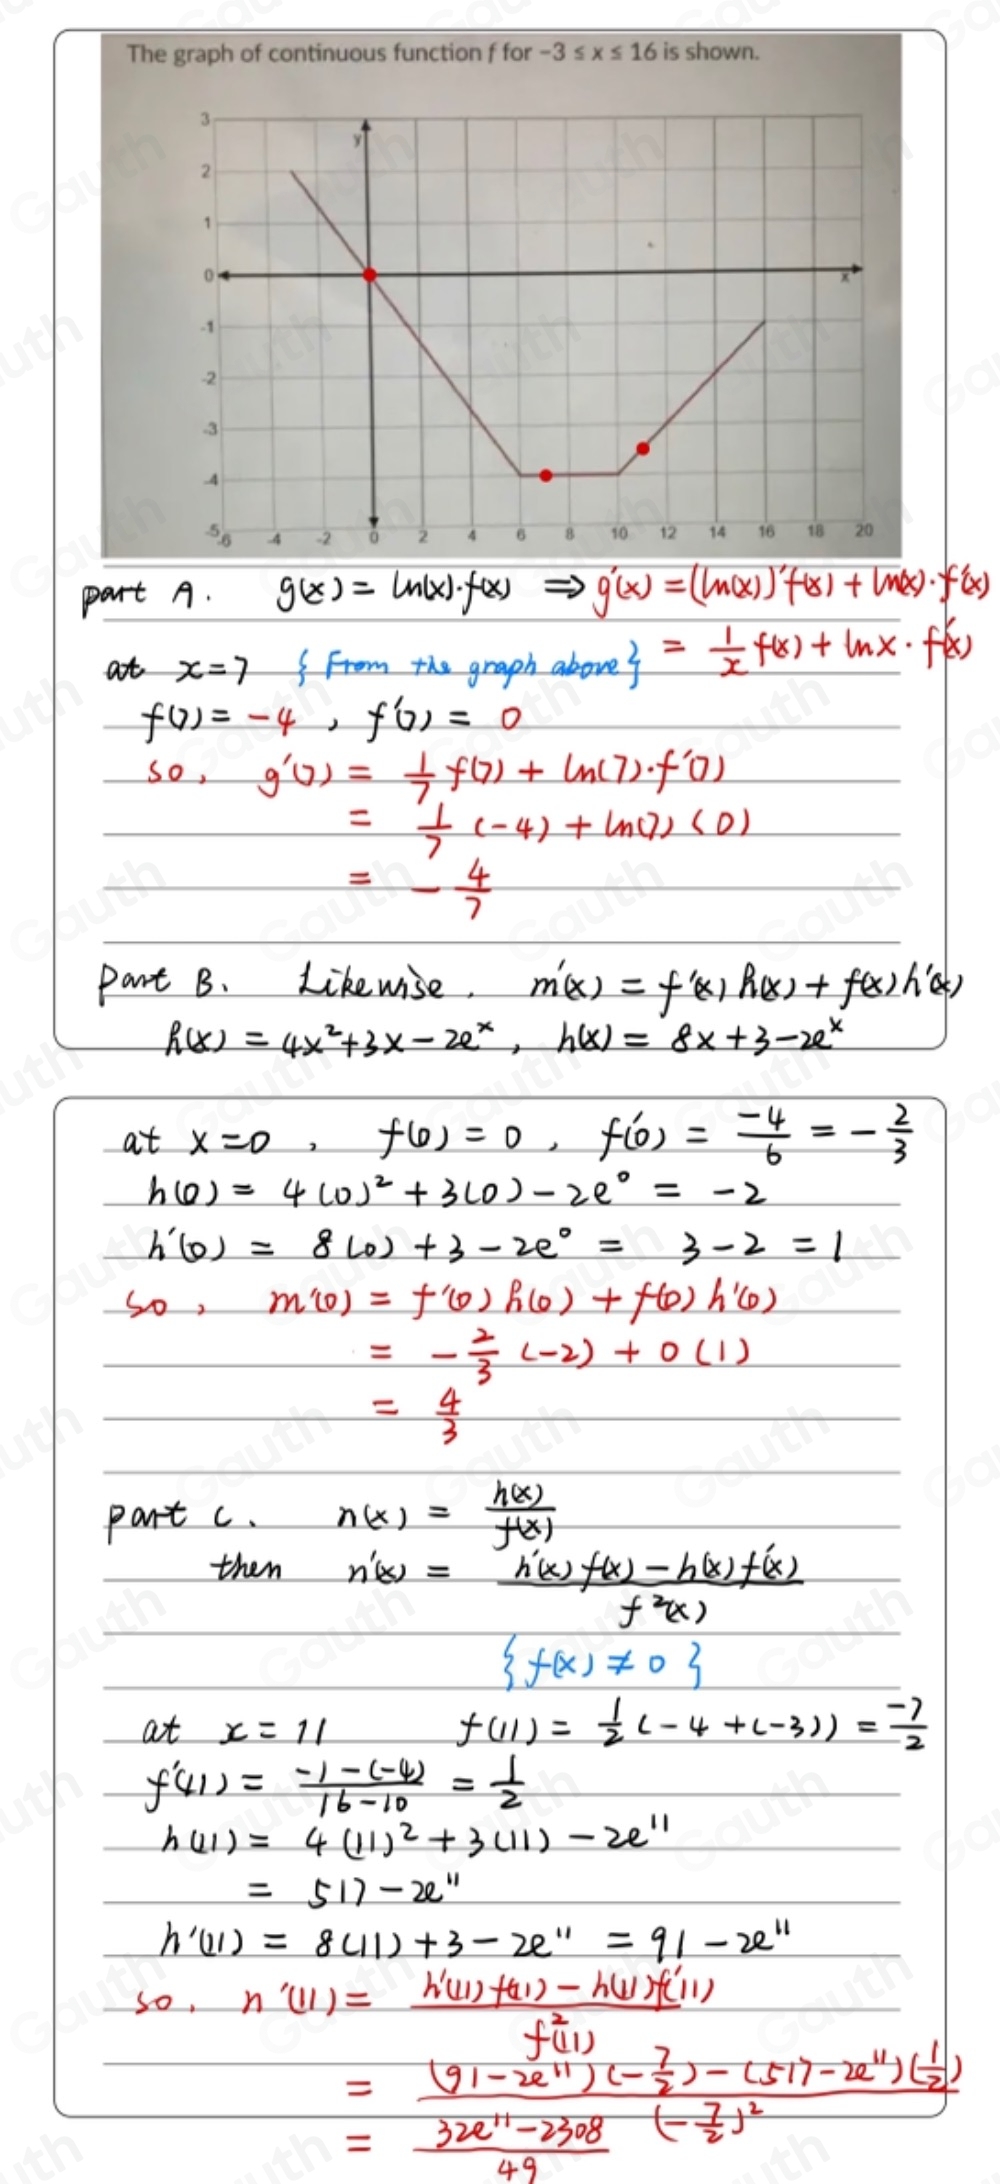 The graph of continuous function f for −3 ≤ x ≤ 16 is shown.
3
y
2
1
0
x
-1
-2
-3
-4
-5
-6 -4 -2 0 2 4 6 8 10 12 14 16 18 20
part A. g(x) = ln(x)·f(x) ⇒ g'(x) = (ln(x))'f(x) + ln(x)·f'(x)
= 1/x f(x) + lnx · f'(x)
at x=7 {From the graph above}
f(7) = -4 , f'(7) = 0
so, g'(7) = 1/7 f(7) + ln(7)·f'(7)
= 1/7 (-4) + ln(7) (0)
= - 4/7
Part B. Likewise. m'(x) = f'(x) h(x) + f(x) h'(x)
h(x) = 4x²+3x-2eˣ , h(x) = 8x+3-2eˣ
at x=0 , f(0) = 0 , f'(0) = -4/6 = - 2/3
h(0) = 4(0)² + 3(0) - 2e⁰ = -2
h'(0) = 8(0) + 3 - 2e⁰ = 3-2 = 1
so , m'(0) = f'(0) h(0) + f(0) h'(0)
= - 2/3 (-2) + 0 (1)
= 4/3
part C. n(x) = h(x)/f(x)
then n'(x) = h'(x) f(x) - h(x) f'(x) / f²(x)
{f(x) ≠ 0}
at x = 11 f(11) = 1/2 (-4+(-3)) = -7/2
f'(11) = -1-(-4) / 16-10 = 1/2
h(11) = 4(11)² + 3(11) - 2e¹¹
= 517 - 2e¹¹
h'(11) = 8(11) + 3 - 2e¹¹ = 91 - 2e¹¹
so, n'(11) = h'(11) f(11) - h(11) f'(11) / f²(11)
= (91-2e¹¹)(-7/2) - (517-2e¹¹)(1/2) / (-7/2)²
= 32e¹¹-2308 / 49
Gauth